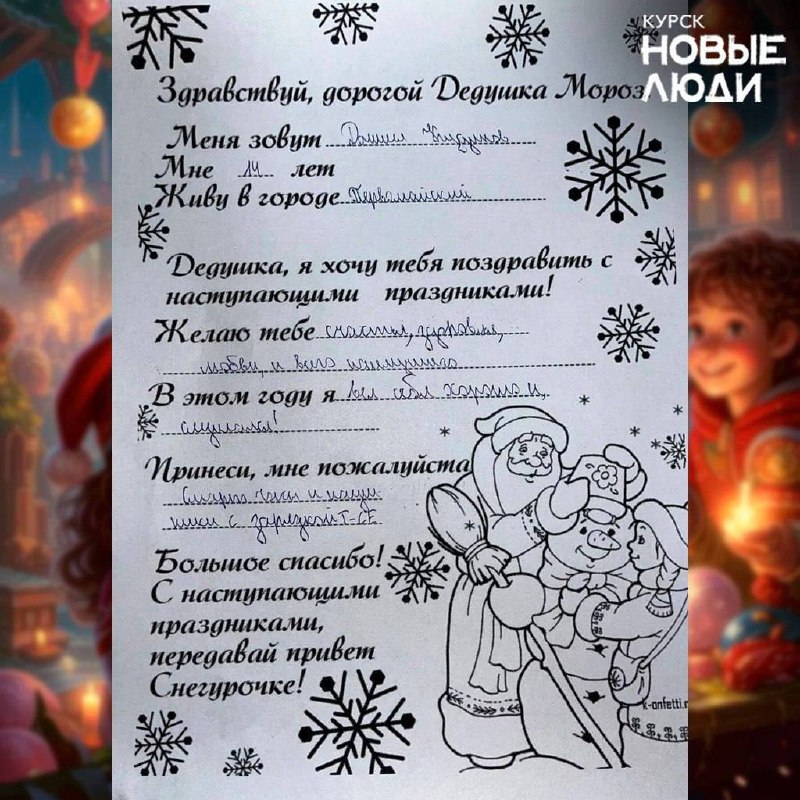 КУРСК
НОВЫЕ
ЛЮДИ
Здравствуй, дорогой Дедушка Мороз
Меня зовут Даниил
Мне 14 лет
Живу в городе Первомайский
Дедушка, я хочу тебя поздравить с
наступающими праздниками!
Желаю тебе счастья, здоровье,
любви, и всего наилучшего
В этом году я вёл себя хорошо и,
слушался!
Принеси, мне пожалуйста
Смарт часы и науш
ники с зарядкой T-CE
Большое спасибо!
С наступающими
праздниками,
передавай привет
Снегурочке!
k-onfetti.r